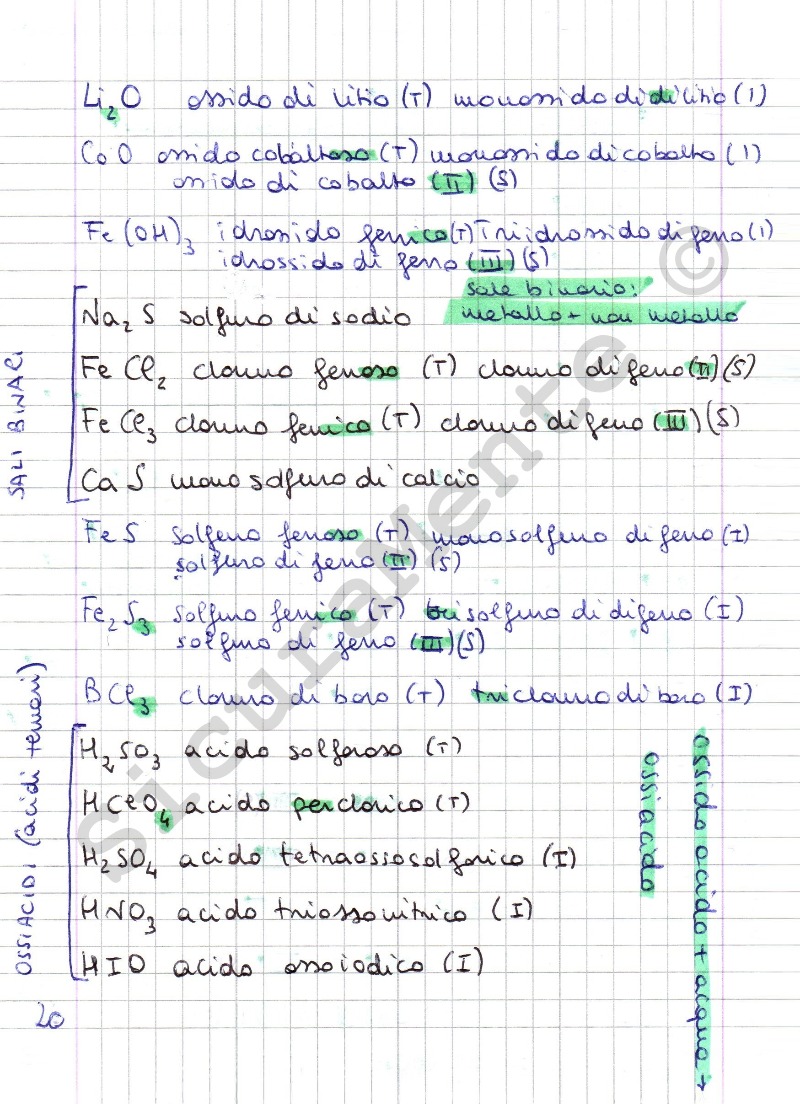 Li₂O ossido di litio (T) monossido di dilitio (I)
CoO ossido cobaltoso (T) monossido di cobalto (I)
ossido di cobalto (II) (S)
Fe(OH)₃ idrossido ferrico (T) Triidrossido di ferro (I)
idrossido di ferro (III) (S)
sale binario:
metallo + non metallo
SALI BINARI
Na₂S solfuro di sodio
FeCl₂ cloruro ferroso (T) cloruro di ferro (II) (S)
FeCl₃ cloruro ferrico (T) cloruro di ferro (III) (S)
CaS mono solfuro di calcio
FeS solfuro ferroso (T) monosolfuro di ferro (I)
solfuro di ferro (II) (S)
Fe₂S₃ solfuro ferrico (T) trisolfuro di diferro (I)
solfuro di ferro (III) (S)
BCl₃ cloruro di boro (T) tricloruro di boro (I)
OSSIACIDI (acidi ternari)
H₂SO₃ acido solforoso (T)
HClO₄ acido perclorico (T)
H₂SO₄ acido tetraossosolforico (I)
HNO₃ acido triossonitrico (I)
HIO acido ossoiodico (I)
ossido acido + acqua →
ossiacido
20
SicuraMente ©